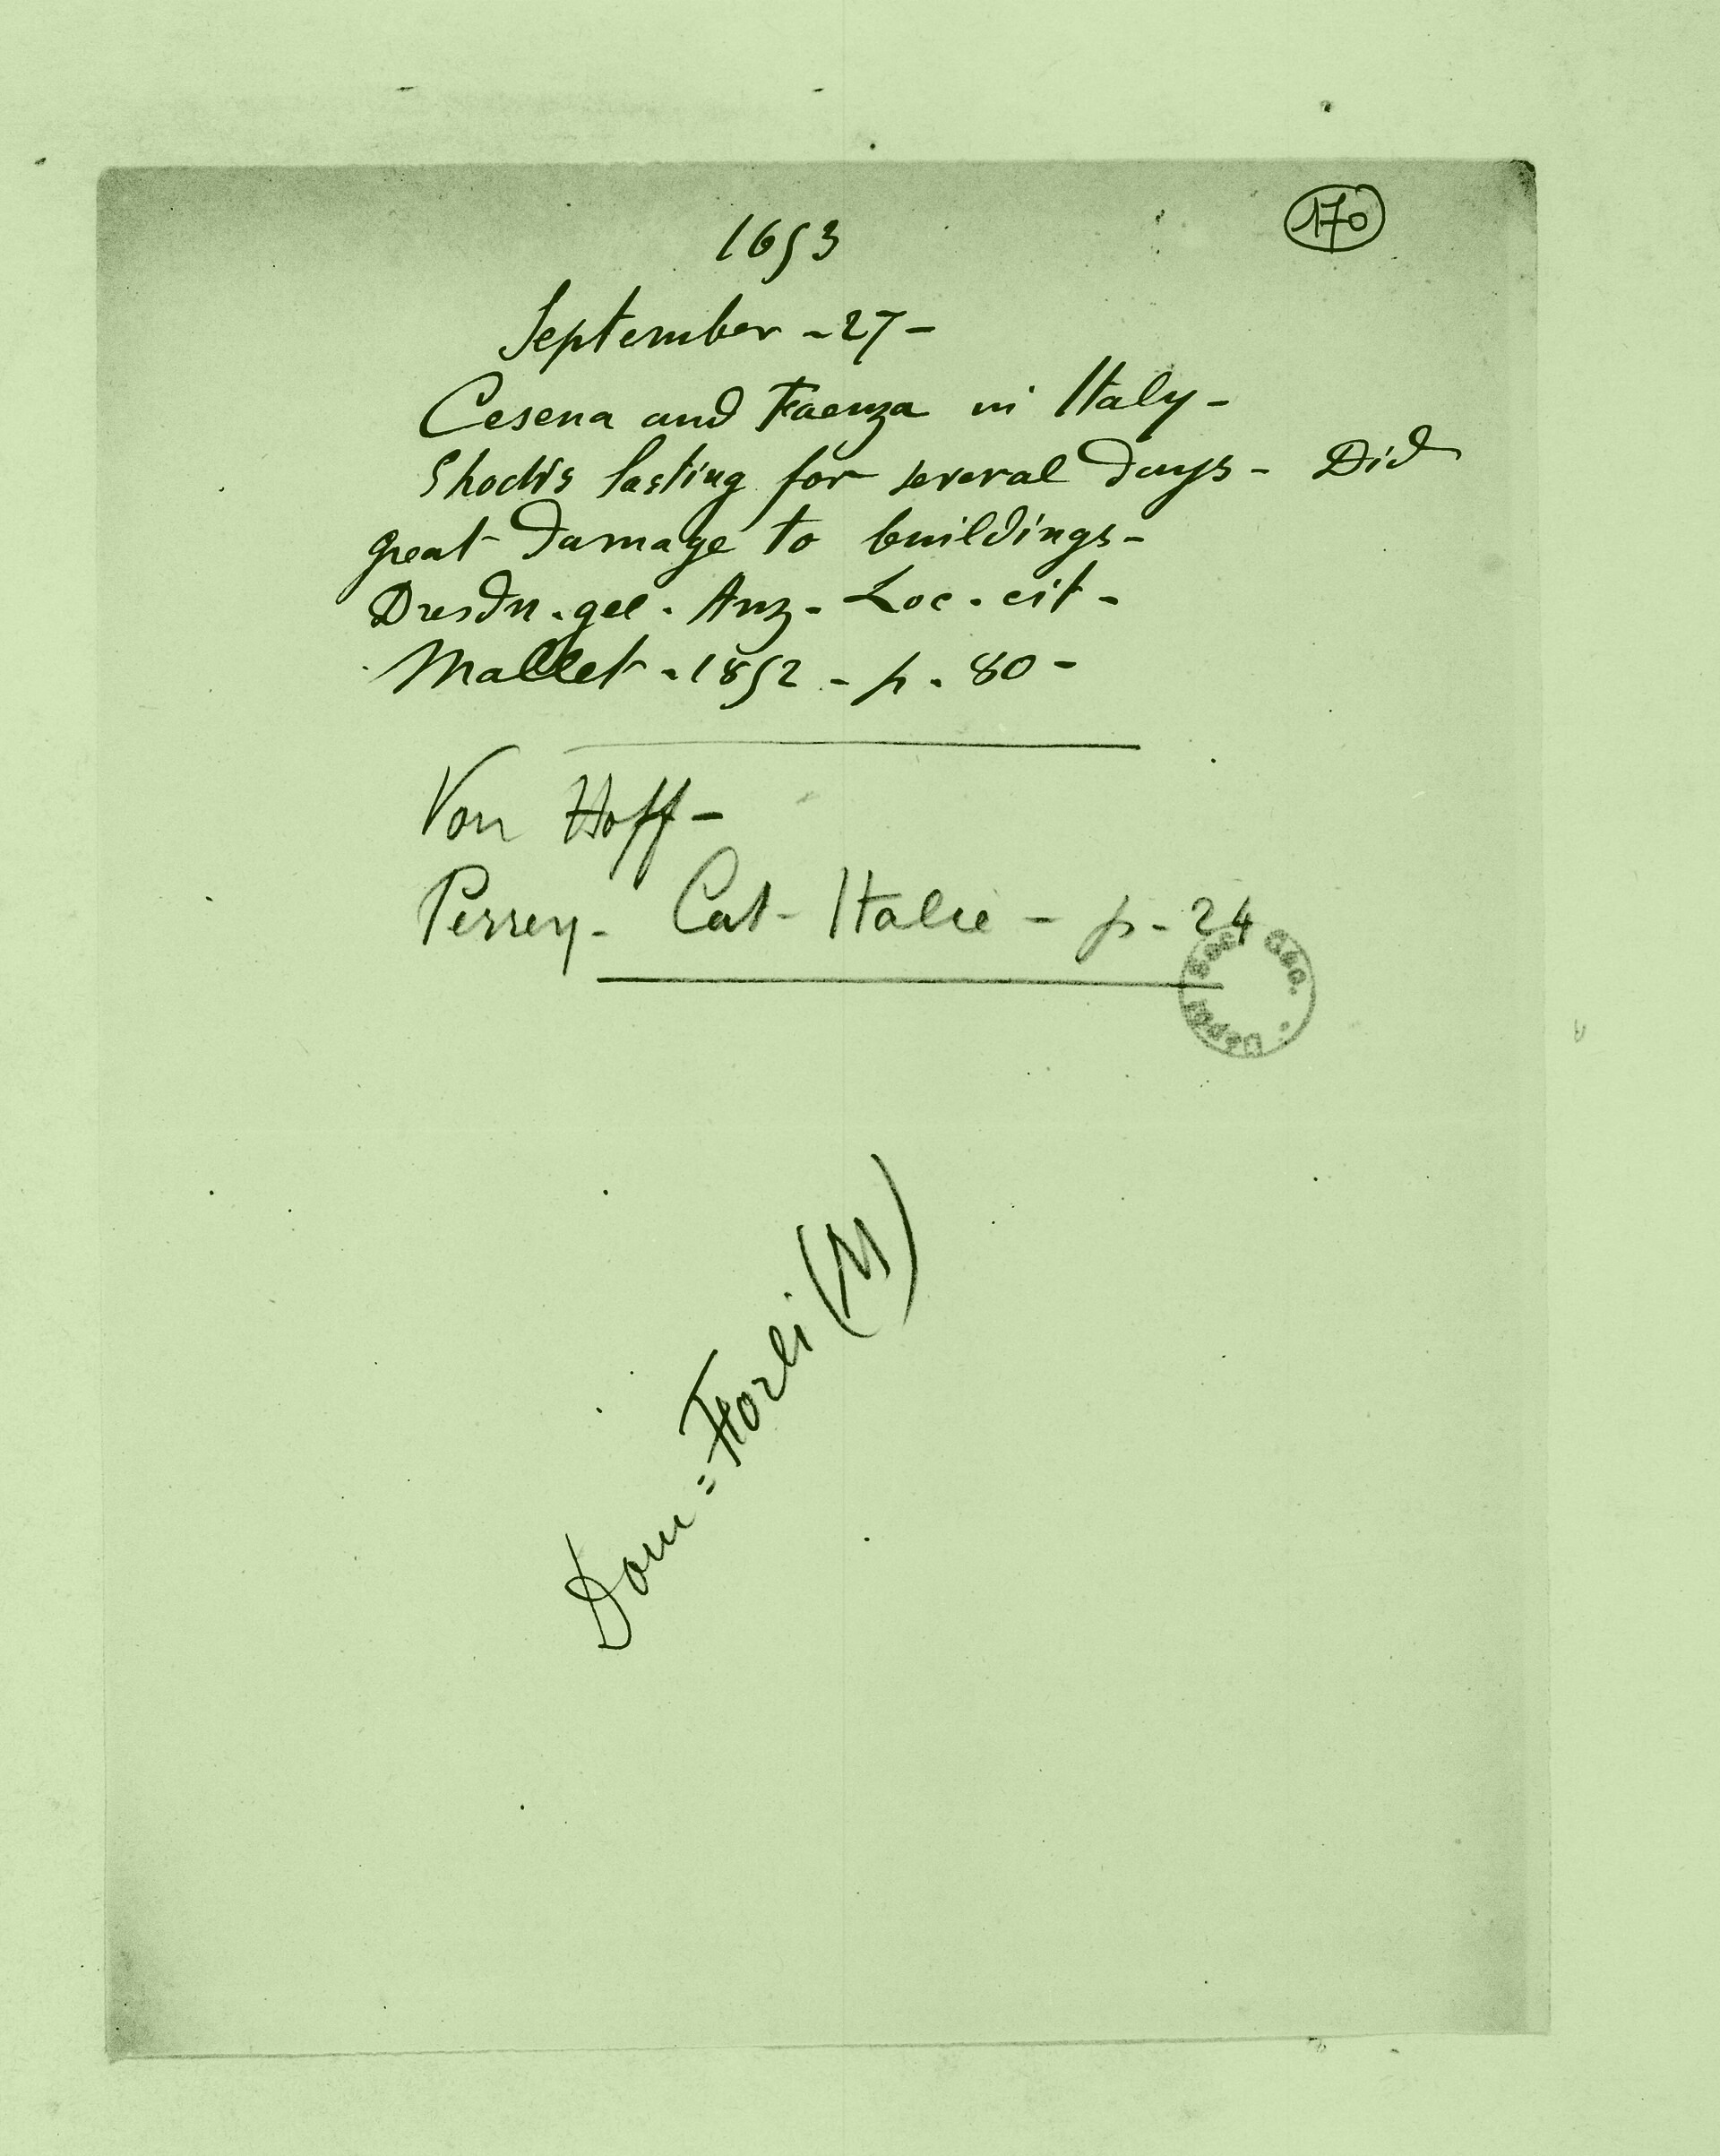 170
1653
September - 27 -
Cesena and Faenza in Italy -
Shocks lasting for several days - Did
great damage to buildings -
Dresdn. gel. Anz - Loc. cit -
Mallet - 1852 - p. 80 -
Von Hoff -
Perrey - Cat - Italie - p - 24
Dom = Forli (M)